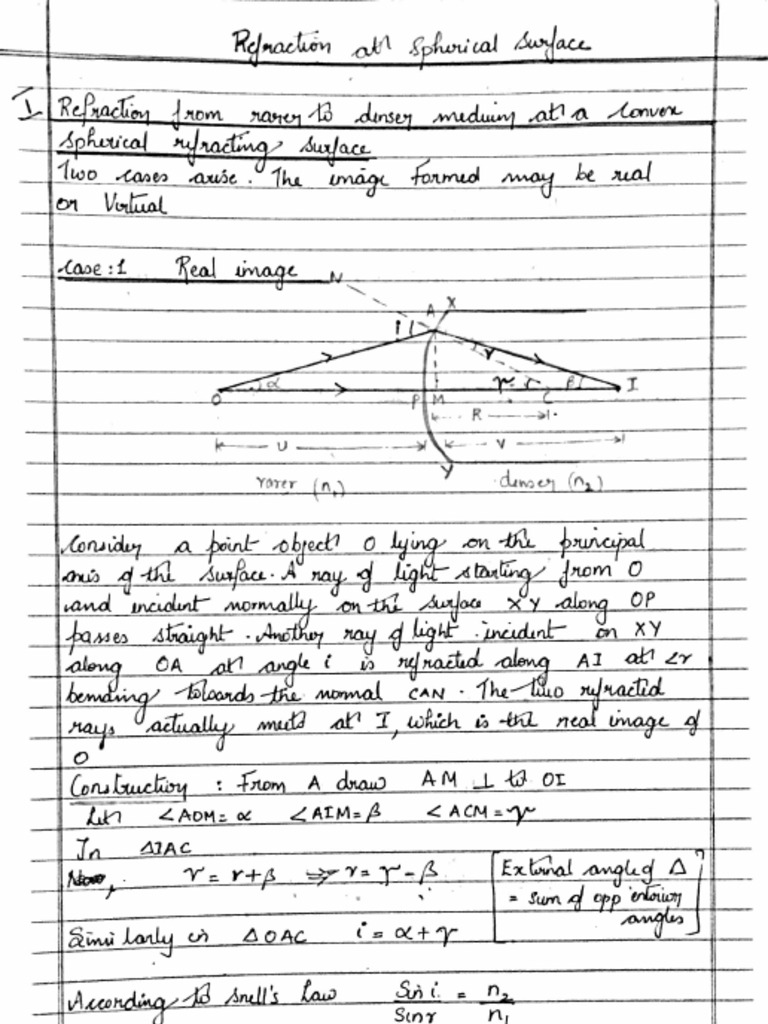 Refraction at spherical surface
I Refraction from rarer to denser medium at a convex
spherical refracting surface
Two cases arise. The image formed may be real
or Virtual
Case:1 Real image
N
A X
i
r
α γ r β
O P M C I
R
u v
Y
rarer (n₁) denser (n₂)
Consider a point object O lying on the principal
axis of the surface. A ray of light starting from O
and incident normally on the surface XY along OP
passes straight. Another ray of light incident on XY
along OA at angle i is refracted along AI at ∠r
bending towards the normal CAN. The two refracted
rays actually meets at I, which is the real image of
O
Construction : From A draw AM ⊥ to OI
Let ∠AOM = α ∠AIM = β ∠ACM = γ
In ΔIAC
Now, γ = r + β ⇒ r = γ - β
[External angle of Δ
= sum of opp interior
angles]
Similarly in ΔOAC i = α + γ
According to snell's Law Sin i / Sin r = n₂ / n₁